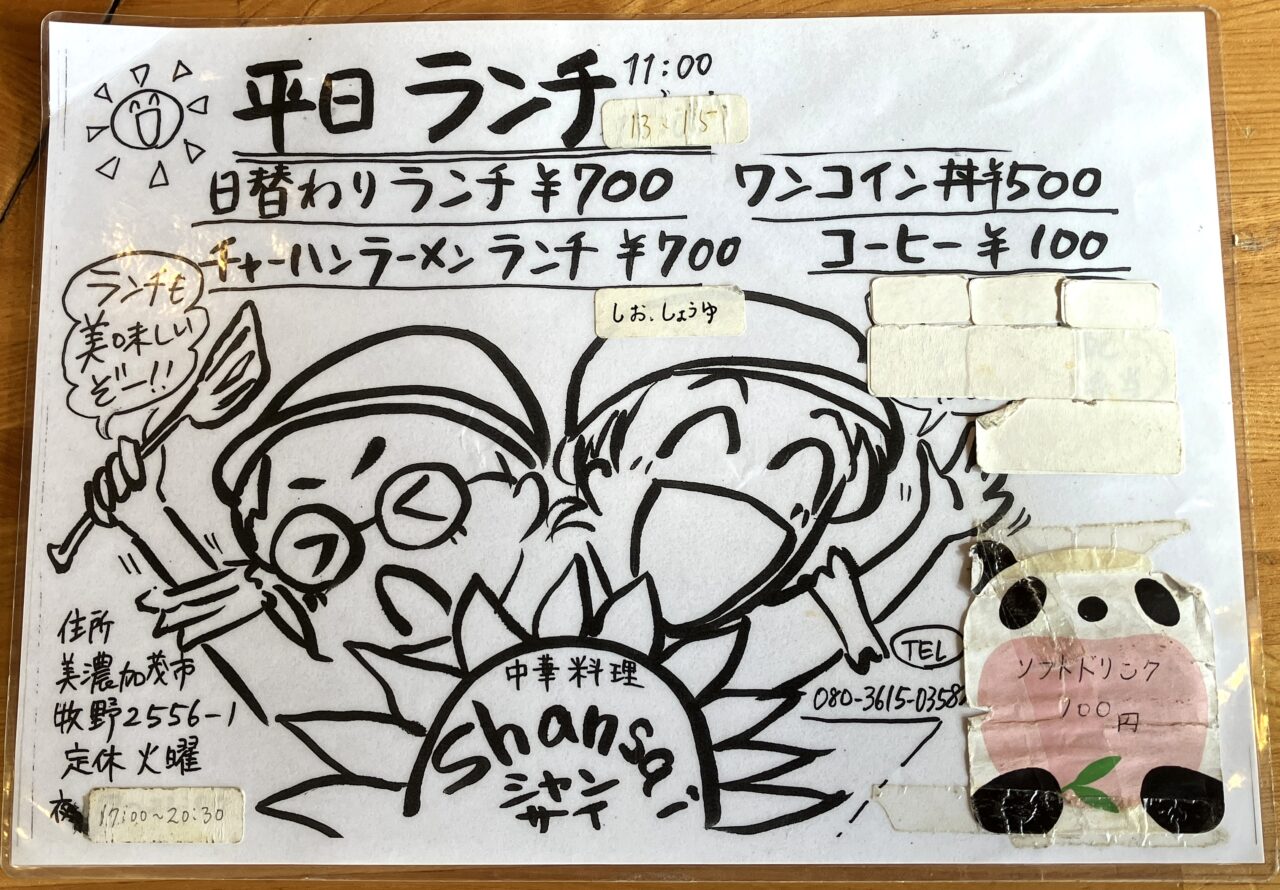 平日 ランチ 11:00
13:15
日替わりランチ ¥700 ワンコイン丼¥500
チャーハンラーメン ランチ ¥700 コーヒー ¥100
しお、しょうゆ
ランチも
美味しい
ぞー!!
中華料理
Shansai
シャン
サイ
住所
美濃加茂市
牧野2556-1
定休 火曜
夜 17:00~20:30
TEL
080-3615-0358
ソフトドリンク
100円